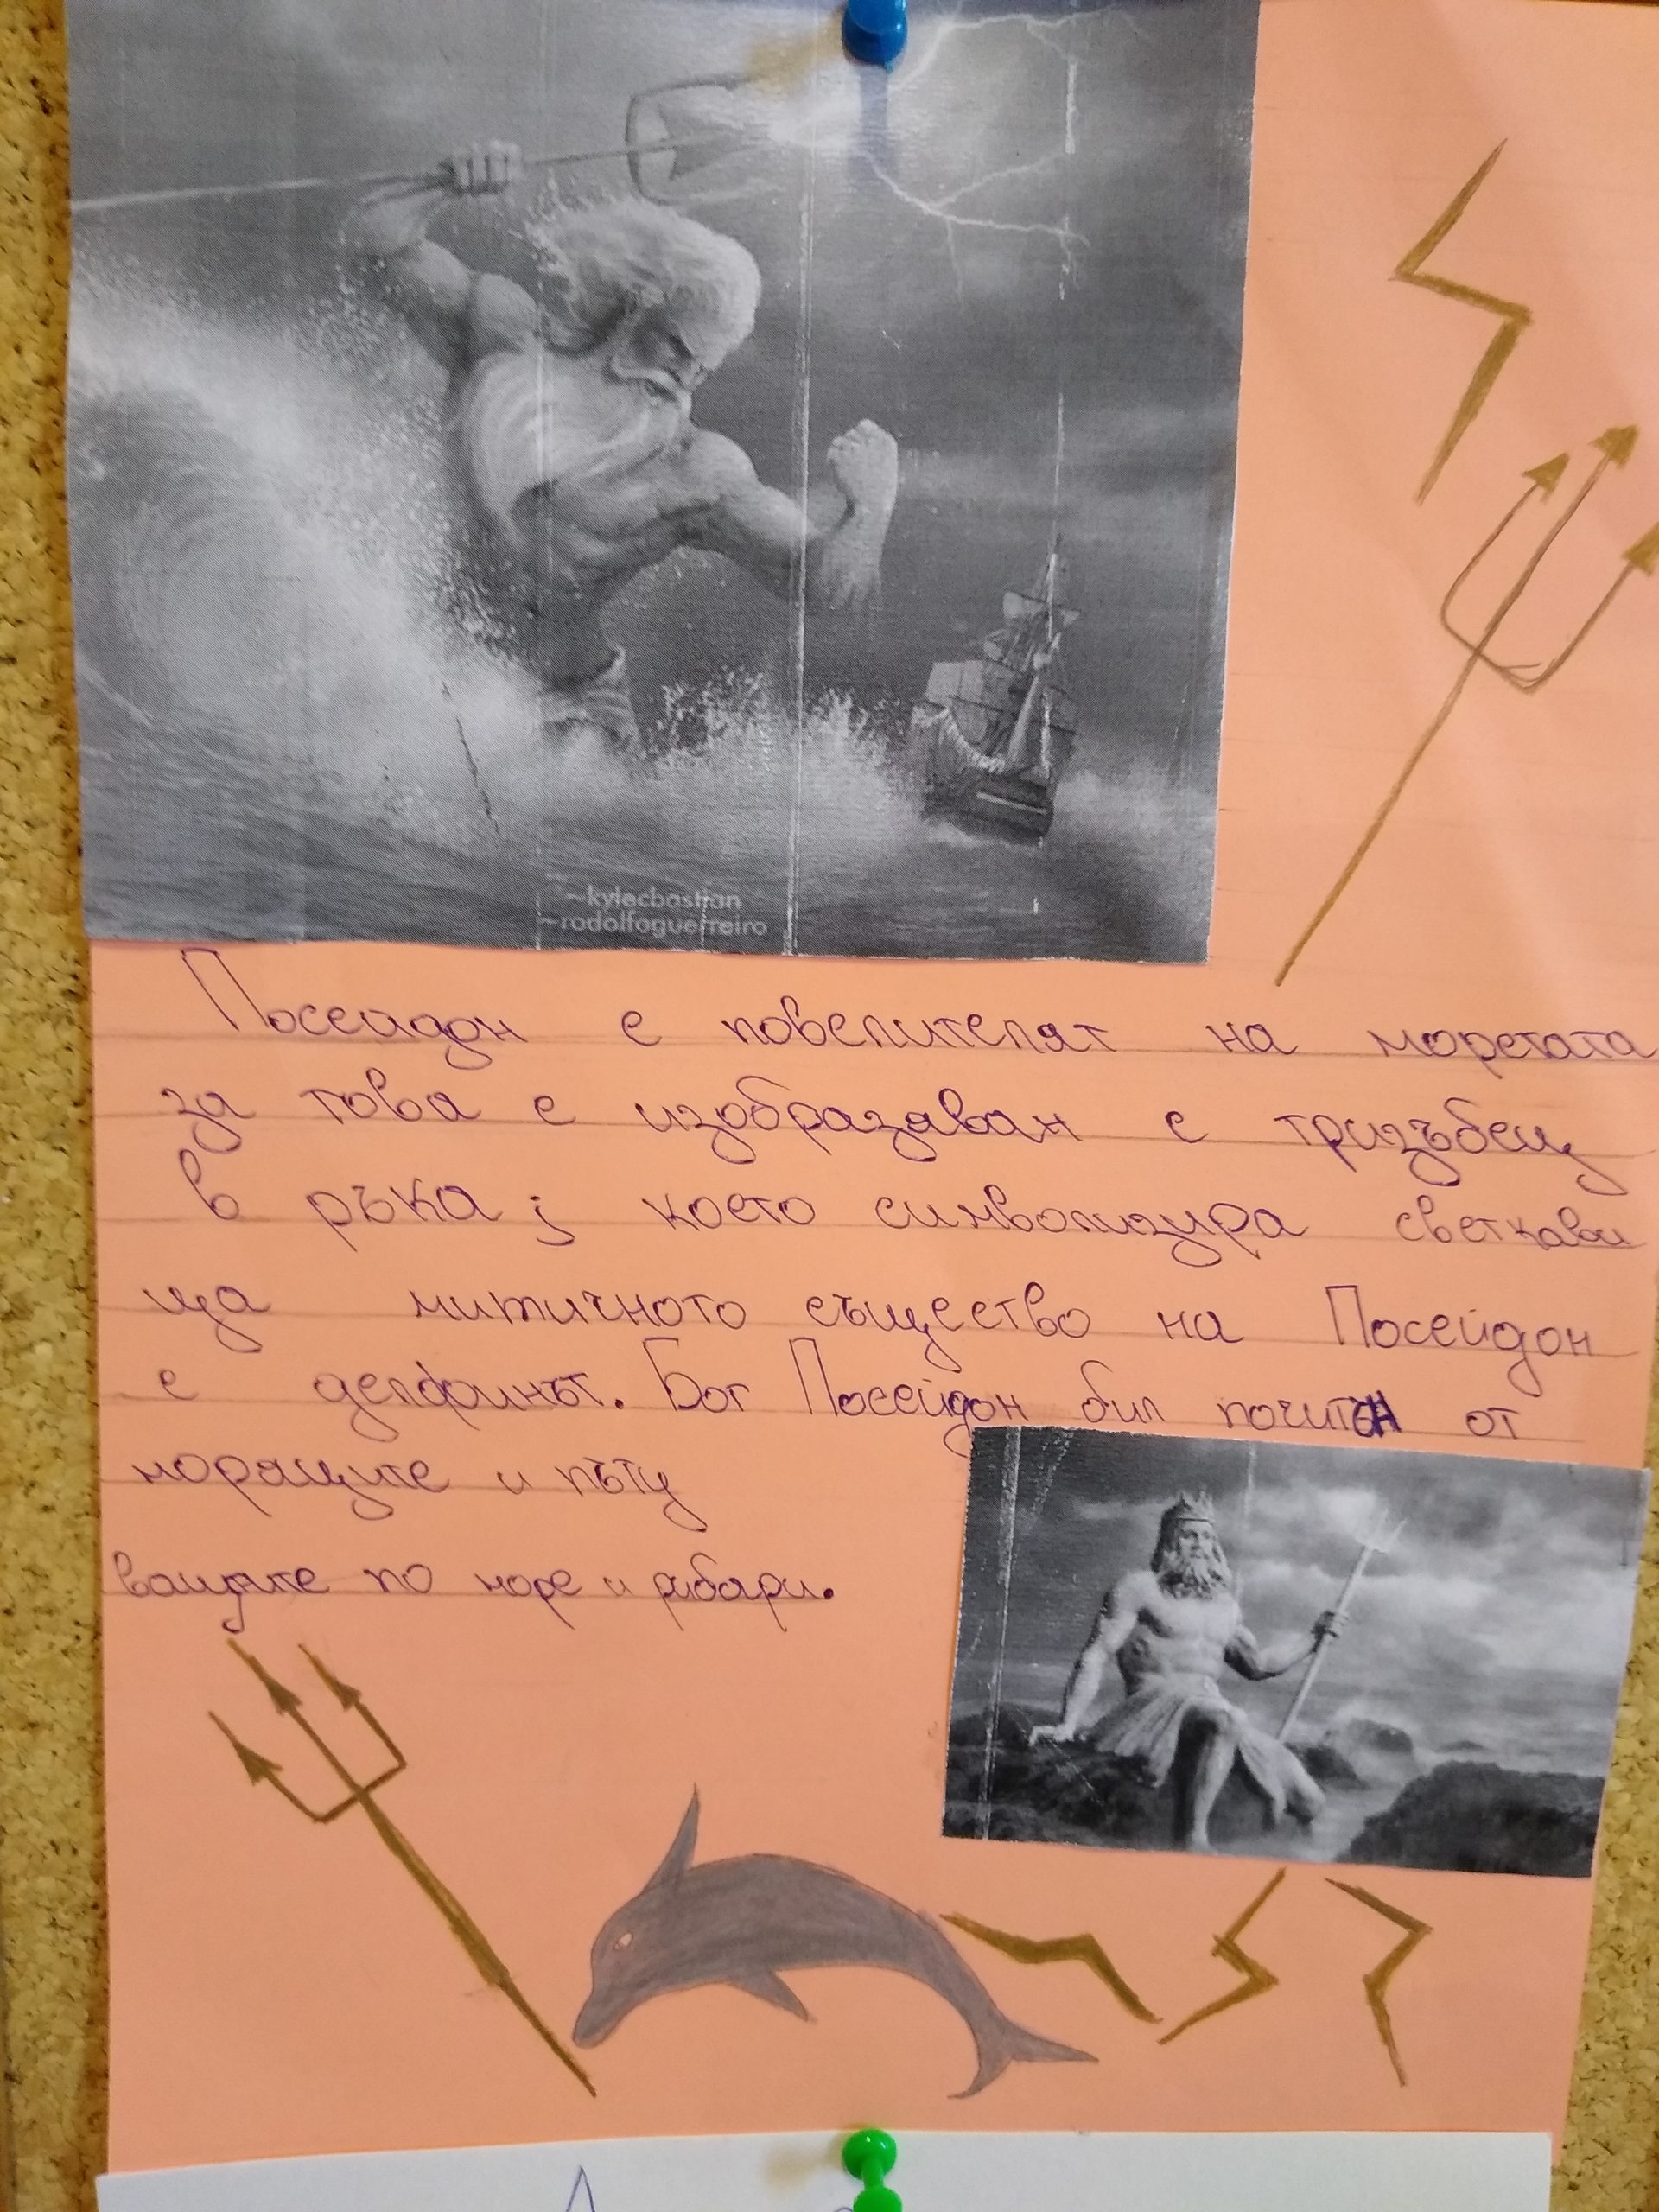 ~kylecbastian
~rodolfoguerreiro
Посеидон е повелителят на моретата
за това е изобразяван с тризъбец
в ръка; което символизира светкави
ца митичното същество на Посейдон
е делфинът. Бог Посейдон бил почитан от
моряците и пъту
ващите по море и рибари.